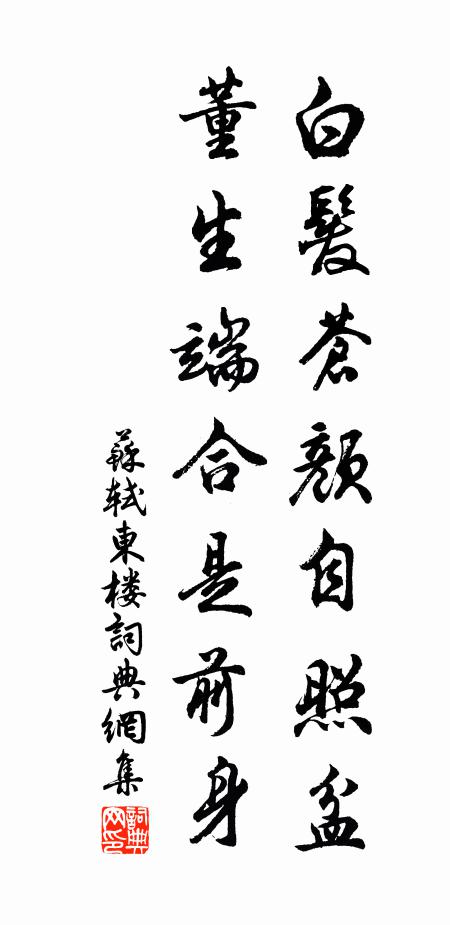 白髮蒼顏自照盆
董生端合是前身
蘇軾東楼詞典網集
詞典
网印